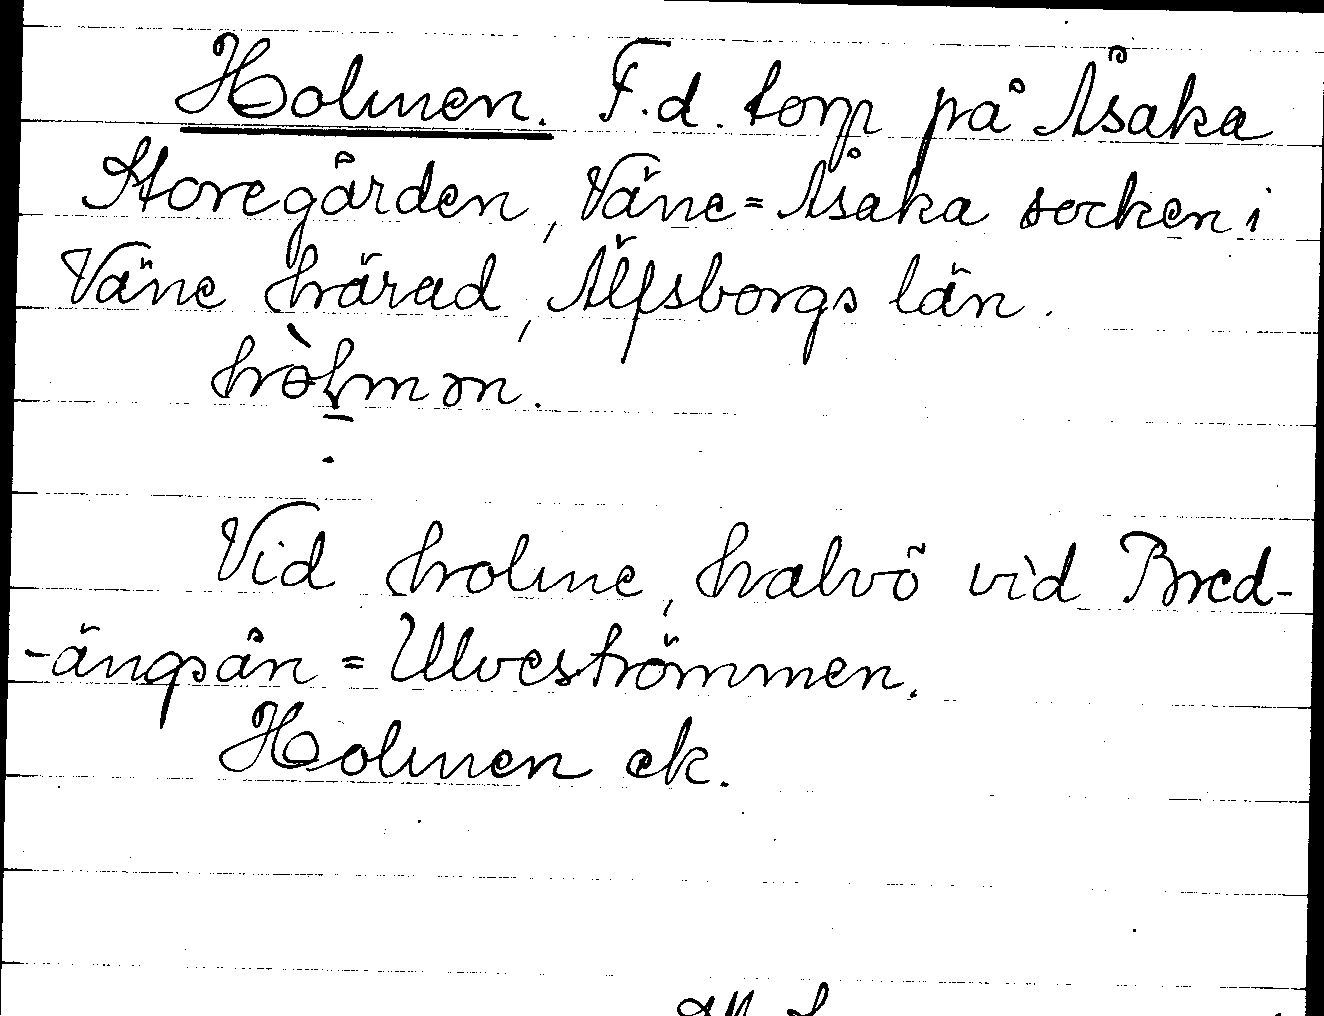 Holmen. F.d. torp på Åsaka
Storegården, Väne=Åsaka socken i
Väne härad, Älfsborgs län.
Vid holme, halvö vid Bred-
-ängsån = Ulveströmmen.
Holmen ek.